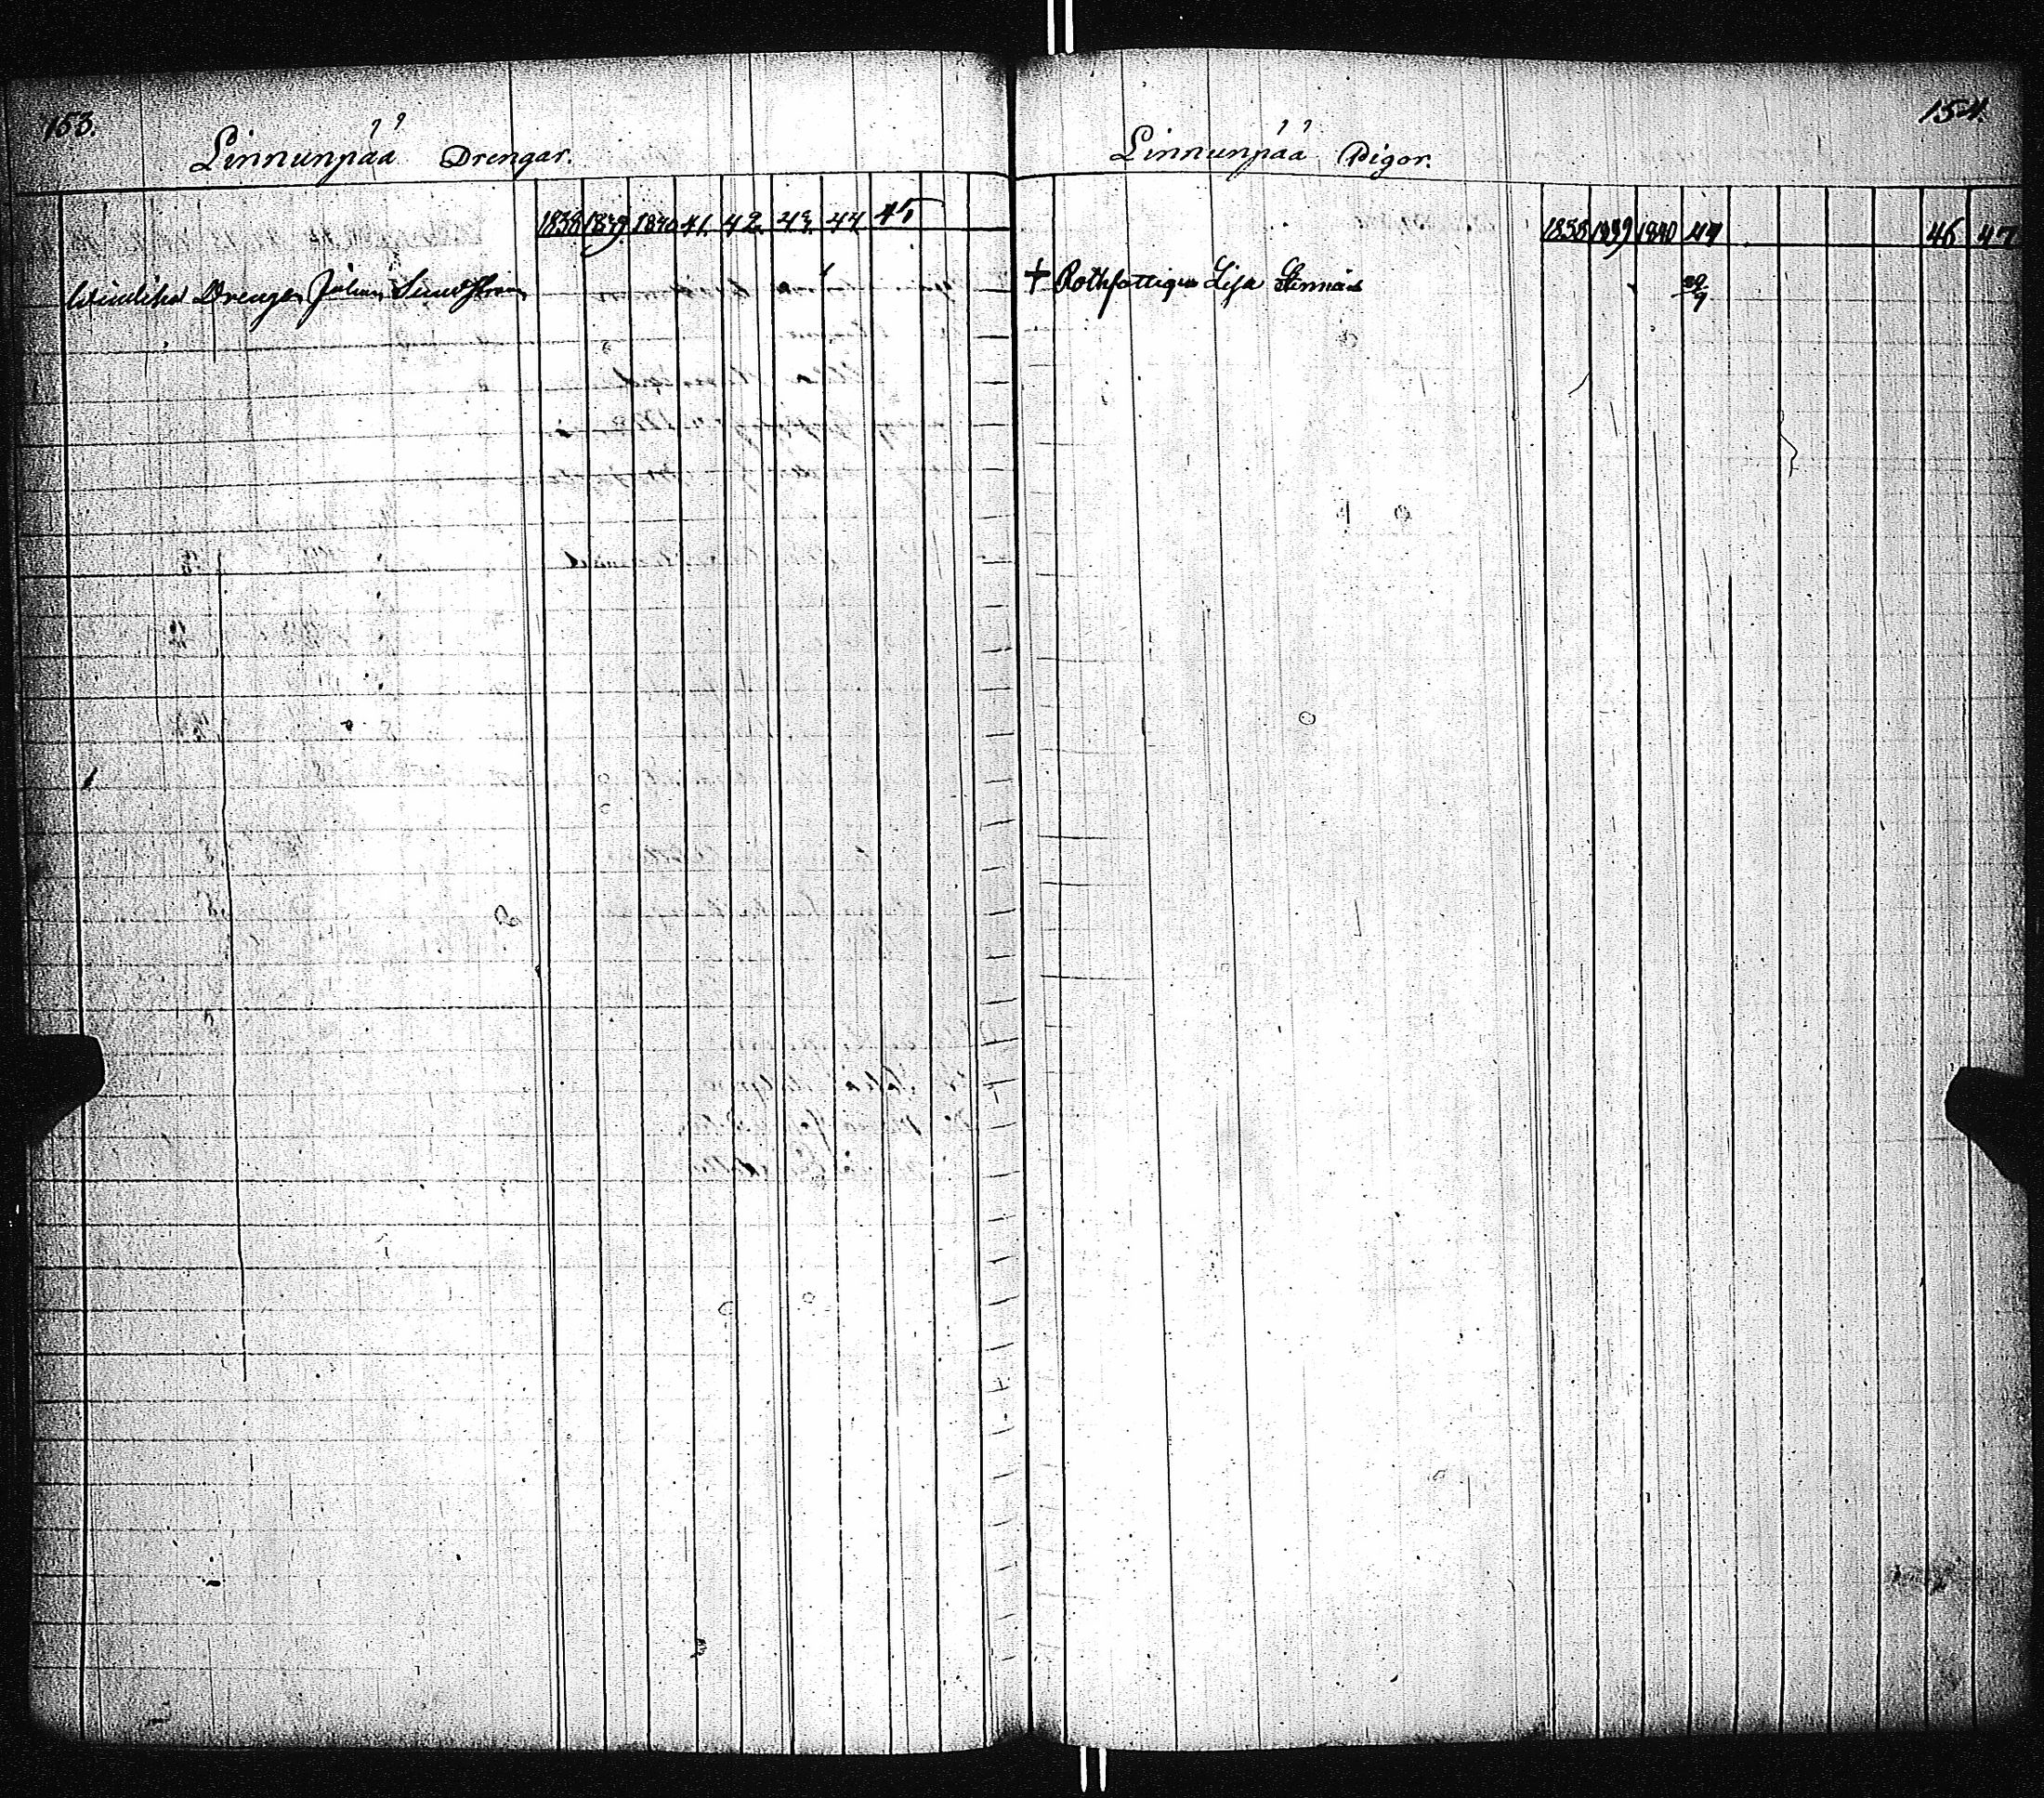 153.
Linnunpää Drengar.
1838 1839 1840 41. 42. 43. 44. 45
Drengen Johan Sundström
154.
Linnunpää Pigor.
1838 1839 1840 44 46 47
† Rothfattiga Lisa Stennäs 29/9